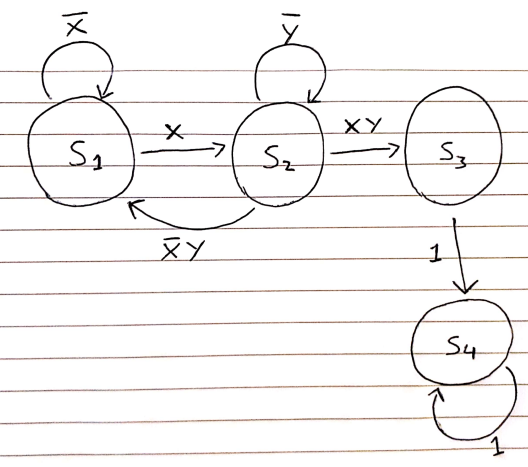 X̅ Y̅
S1 X S2 XY S3
X̅Y
1
S4
1